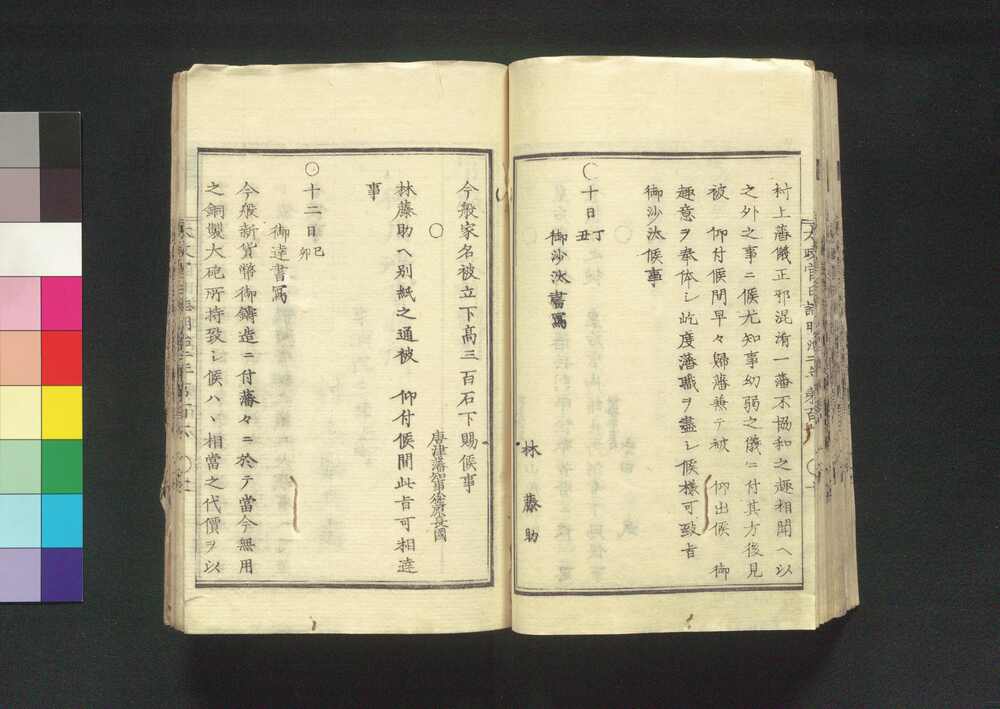 村上藩儀正邪混淆一藩不協和之趣相聞ヘ以
之外之事ニ候尤知事幼弱之儀ニ付其方後見
被　仰付候間早々歸藩兼テ被　仰出候　御
趣意ヲ奉体シ屹度藩職ヲ盡シ候様可致旨
御沙汰候事
○十日丁丑
御沙汰書寫
林藤助
今般家名被立下高三百石下賜候事
○
唐津藩知事小笠原長國
林藤助ヘ別紙之通被　仰付候間此旨可相達
事
○十二日己卯
御達書寫
今般新貨幣御鑄造ニ付藩々ニ於テ當今無用
之銅製大砲所持致シ候ハヽ相當之代價ヲ以